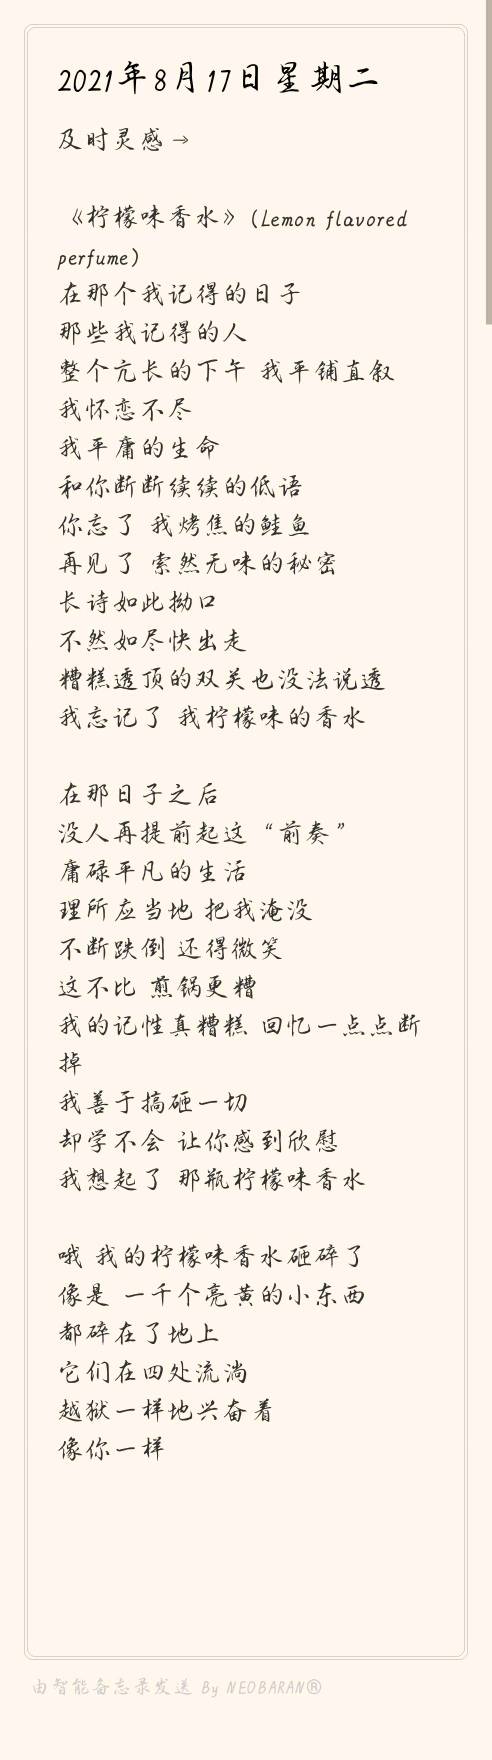 2021年8月17日星期二
及时灵感→
《柠檬味香水》(Lemon flavored
perfume)
在那个我记得的日子
那些我记得的人
整个亢长的下午 我平铺直叙
我怀恋不尽
我平庸的生命
和你断断续续的低语
你忘了 我烤焦的鲑鱼
再见了 索然无味的秘密
长诗如此拗口
不然如尽快出走
糟糕透顶的双关也没法说透
我忘记了 我柠檬味的香水
在那日子之后
没人再提前起这“前奏”
庸碌平凡的生活
理所应当地 把我淹没
不断跌倒 还得微笑
这不比 煎锅更糟
我的记性真糟糕 回忆一点点断
掉
我善于搞砸一切
却学不会 让你感到欣慰
我想起了 那瓶柠檬味香水
哦 我的柠檬味香水砸碎了
像是 一千个亮黄的小东西
都碎在了地上
它们在四处流淌
越狱一样地兴奋着
像你一样
由智能备忘录发送 By NEOBARAN®